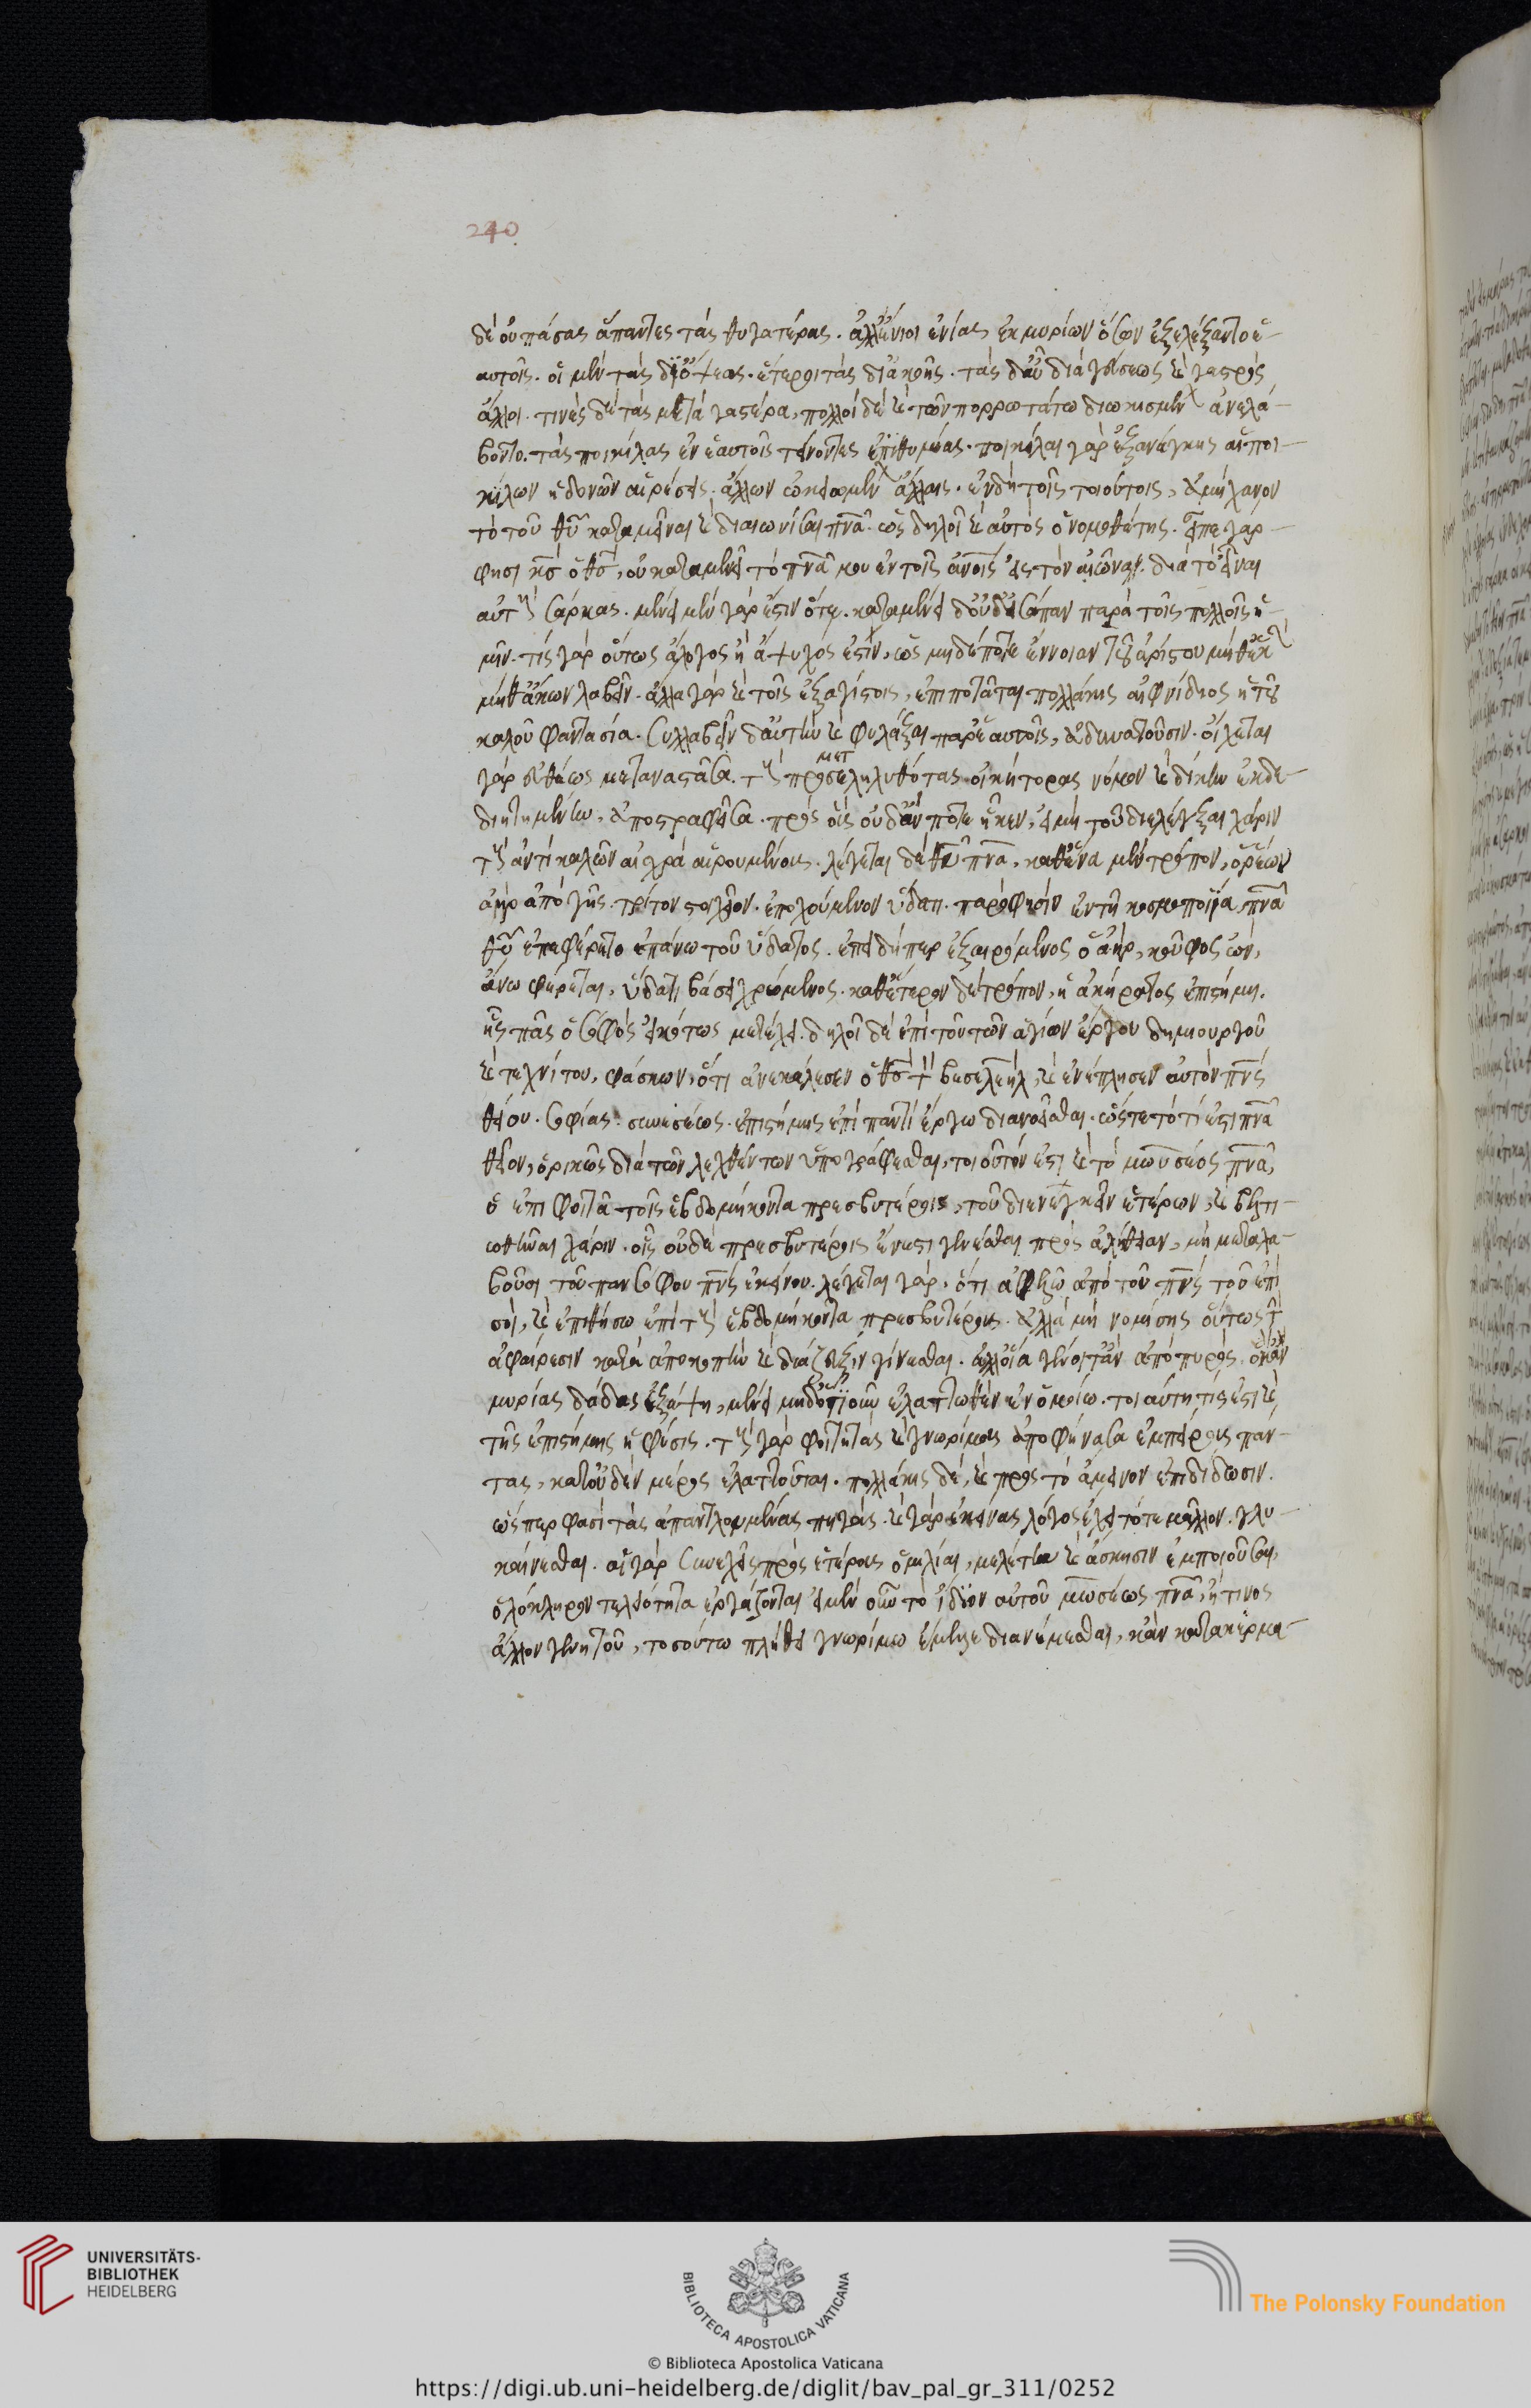 240
δὲ οὐ πάσας ἅπαντες τὰς θυγατέρας. ἀλλ' ἔνιοι ἐνίας ἐκ μυρίων ὅσων ἐξελέξαντο ἑ-
αυτοῖς. οἱ μὲν τὰς δι' ὄψεως. ἕτεροι τὰς δι' ἀκοῆς. τὰς δ' αὖ διὰ γεύσεως καὶ γαστρὸς
ἄλλοι. τινὲς δὲ τὰς μετὰ γαστέρα, πολλοὶ δὲ καὶ τῶν πορρωτάτω διωκισμένων ἀνελά-
βοντο. τὰς ποικίλας ἐν ἑαυτοῖς τείνοντες ἐπιθυμίας. ποικίλαι γὰρ ἐξανάγκης αἱ ποι-
κίλων ἡδονῶν αἱρέσεις. ἄλλων ὠκειωμένων ἄλλαις. ἐν δὴ τοῖς τοιούτοις, ἀμήχανον
τὸ τοῦ θῦ καταμεῖναι καὶ διαιωνίσαι πνᾶ. ὡς δηλοῖ καὶ αὐτὸς ὁ νομοθέτης. εἶπε γάρ
φησι κς ὁ θς, οὐ καταμενεῖ τὸ πνᾶ μου ἐν τοῖς ἀνοις εἰς τὸν αἰῶνα. διὰ τὸ εἶναι
αὐτοὺς σάρκας. μένει μὲν γὰρ ἔστιν ὅτε. καταμένει δ' οὐδ' εἰσάπαν παρὰ τοῖς πολλοῖς ἡ-
μῖν. τίς γὰρ οὕτως ἄλογος ἢ ἄψυχός ἐστιν, ὡς μηδέποτε ἔννοιαν τοῦ ἀρίστου μήθ' ἑκὼν
μήθ' ἄκων λαβεῖν. ἀλλὰ γὰρ καὶ τοῖς ἐξαγίστοις, ἐπιποτᾶται πολλάκις αἰφνίδιος ἡ τοῦ
καλοῦ φαντασία. συλλαβεῖν δ' αὐτὴν καὶ φυλάξαι παρ' ἑαυτοῖς, ἀδυνατοῦσιν. οἴχεται
μετ
γὰρ εὐθέως μεταναστᾶσα. τοὺς προσεληλυθότας οἰκήτορας νόμον καὶ δίκην ἐκδε-
διῃτημένων, ἀποστραφεῖσα. πρὸς οἷς οὐδ' ἄν ποτε ἧκεν, εἰ μὴ τοῦ διελέγξαι χάριν
τοὺς ἀντὶ καλῶν αἰσχρὰ αἱρουμένους. λέγεται δὲ θῦ πνᾶ, καθ' ἕνα μὲν τρόπον, ὁ ῥέων
ἀὴρ ἀπὸ γῆς. τρίτον στοιχεῖον. ἐποχούμενον ὕδατι. παρό φησιν ἐν τῇ κοσμοποιίᾳ, πνᾶ
θῦ ἐπεφέρετο ἐπάνω τοῦ ὕδατος. ἐπειδήπερ ἐξαιρόμενος ὁ ἀήρ, κοῦφος ὤν,
ἄνω φέρεται, ὕδατι βάσει χρώμενος. καθ' ἕτερον δὲ τρόπον, ἡ ἀκήρατος ἐπιστήμη.
ἧς πᾶς ὁ σοφὸς εἰκότως μετέχει. δηλοῖ δὲ ἐπὶ τοῦ τῶν ἁγίων ἔργου δημιουργοῦ
καὶ τεχνίτου, φάσκων, ὅτι ἀνεκάλεσεν ὁ θς τὸν βεσελεὴλ, καὶ ἐνέπλησεν αὐτὸν πνς
θείου. σοφίας. συνέσεως. ἐπιστήμης ἐπὶ παντὶ ἔργῳ διανοεῖσθαι. ὥστε τὸ τί ἐστι πνᾶ
θεῖον, ὁρικῶς διὰ τῶν λεχθέντων ὑπογράφεσθαι, τοιοῦτόν ἐστι καὶ τὸ μωυσέος πνᾶ,
ὃ ἐπιφοιτᾶ τοῖς ἑβδομήκοντα πρεσβυτέροις, τοῦ διενεγκεῖν ἑτέρων, καὶ βελτι-
ωθῆναι χάριν. οἷς οὐδὲ πρεσβυτέροις ἔνεστι γενέσθαι πρὸς ἀλήθειαν, μὴ μεταλα-
βοῦσι τοῦ πανσόφου πνς ἐκείνου. λέγεται γάρ, ὅτι ἀφελῶ ἀπὸ τοῦ πνς τοῦ ἐπὶ
σοί, καὶ ἐπιθήσω ἐπὶ τοὺς ἑβδομήκοντα πρεσβυτέρους. ἀλλὰ μὴ νομίσῃς οὕτως τὴν
ἀφαίρεσιν κατὰ ἀποκοπὴν καὶ διάζευξιν γίνεσθαι. ἀλλ' οἵα γένοιτ' ἂν ἀπὸ πυρός, ὃ κἂν
μυρίας δᾷδας ἐξάψῃ, μένει μηδ' ὁτιοῦν ἐλαττωθὲν ἐν ὁμοίῳ. τοιαύτη τίς ἐστι καὶ
τῆς ἐπιστήμης ἡ φύσις. τοὺς γὰρ φοιτητὰς καὶ γνωρίμους ἀποφήνασα ἐμπείρους πάν-
τας, κατ' οὐδὲν μέρος ἐλαττοῦται. πολλάκις δὲ, καὶ πρὸς τὸ ἄμεινον ἐπιδίδωσιν.
ὥσπερ φασὶ τὰς ἀπαντλουμένας πηγάς. καὶ γὰρ ἐκείνας λόγος ἔχει τότε μᾶλλον. γλυ-
καίνεσθαι. αἱ γὰρ συνεχεῖς πρὸς ἑτέρους ὁμιλίαι, μελέτην καὶ ἄσκησιν ἐμποιοῦσαι,
ὁλόκληρον τελειότητα ἐργάζονται εἰ μὲν οὖν τὸ ἴδιον αὐτοῦ μωσέως πνᾶ, ἤ τινος
ἄλλου γενητοῦ, τοσούτῳ πλήθει γνωρίμων ἔμελλε διανέμεσθαι, κἂν κατακερμα-
UNIVERSITÄTS-
BIBLIOTHEK
HEIDELBERG
BIBLIOTECA APOSTOLICA VATICANA
The Polonsky Foundation
© Biblioteca Apostolica Vaticana
https://digi.ub.uni-heidelberg.de/diglit/bav_pal_gr_311/0252